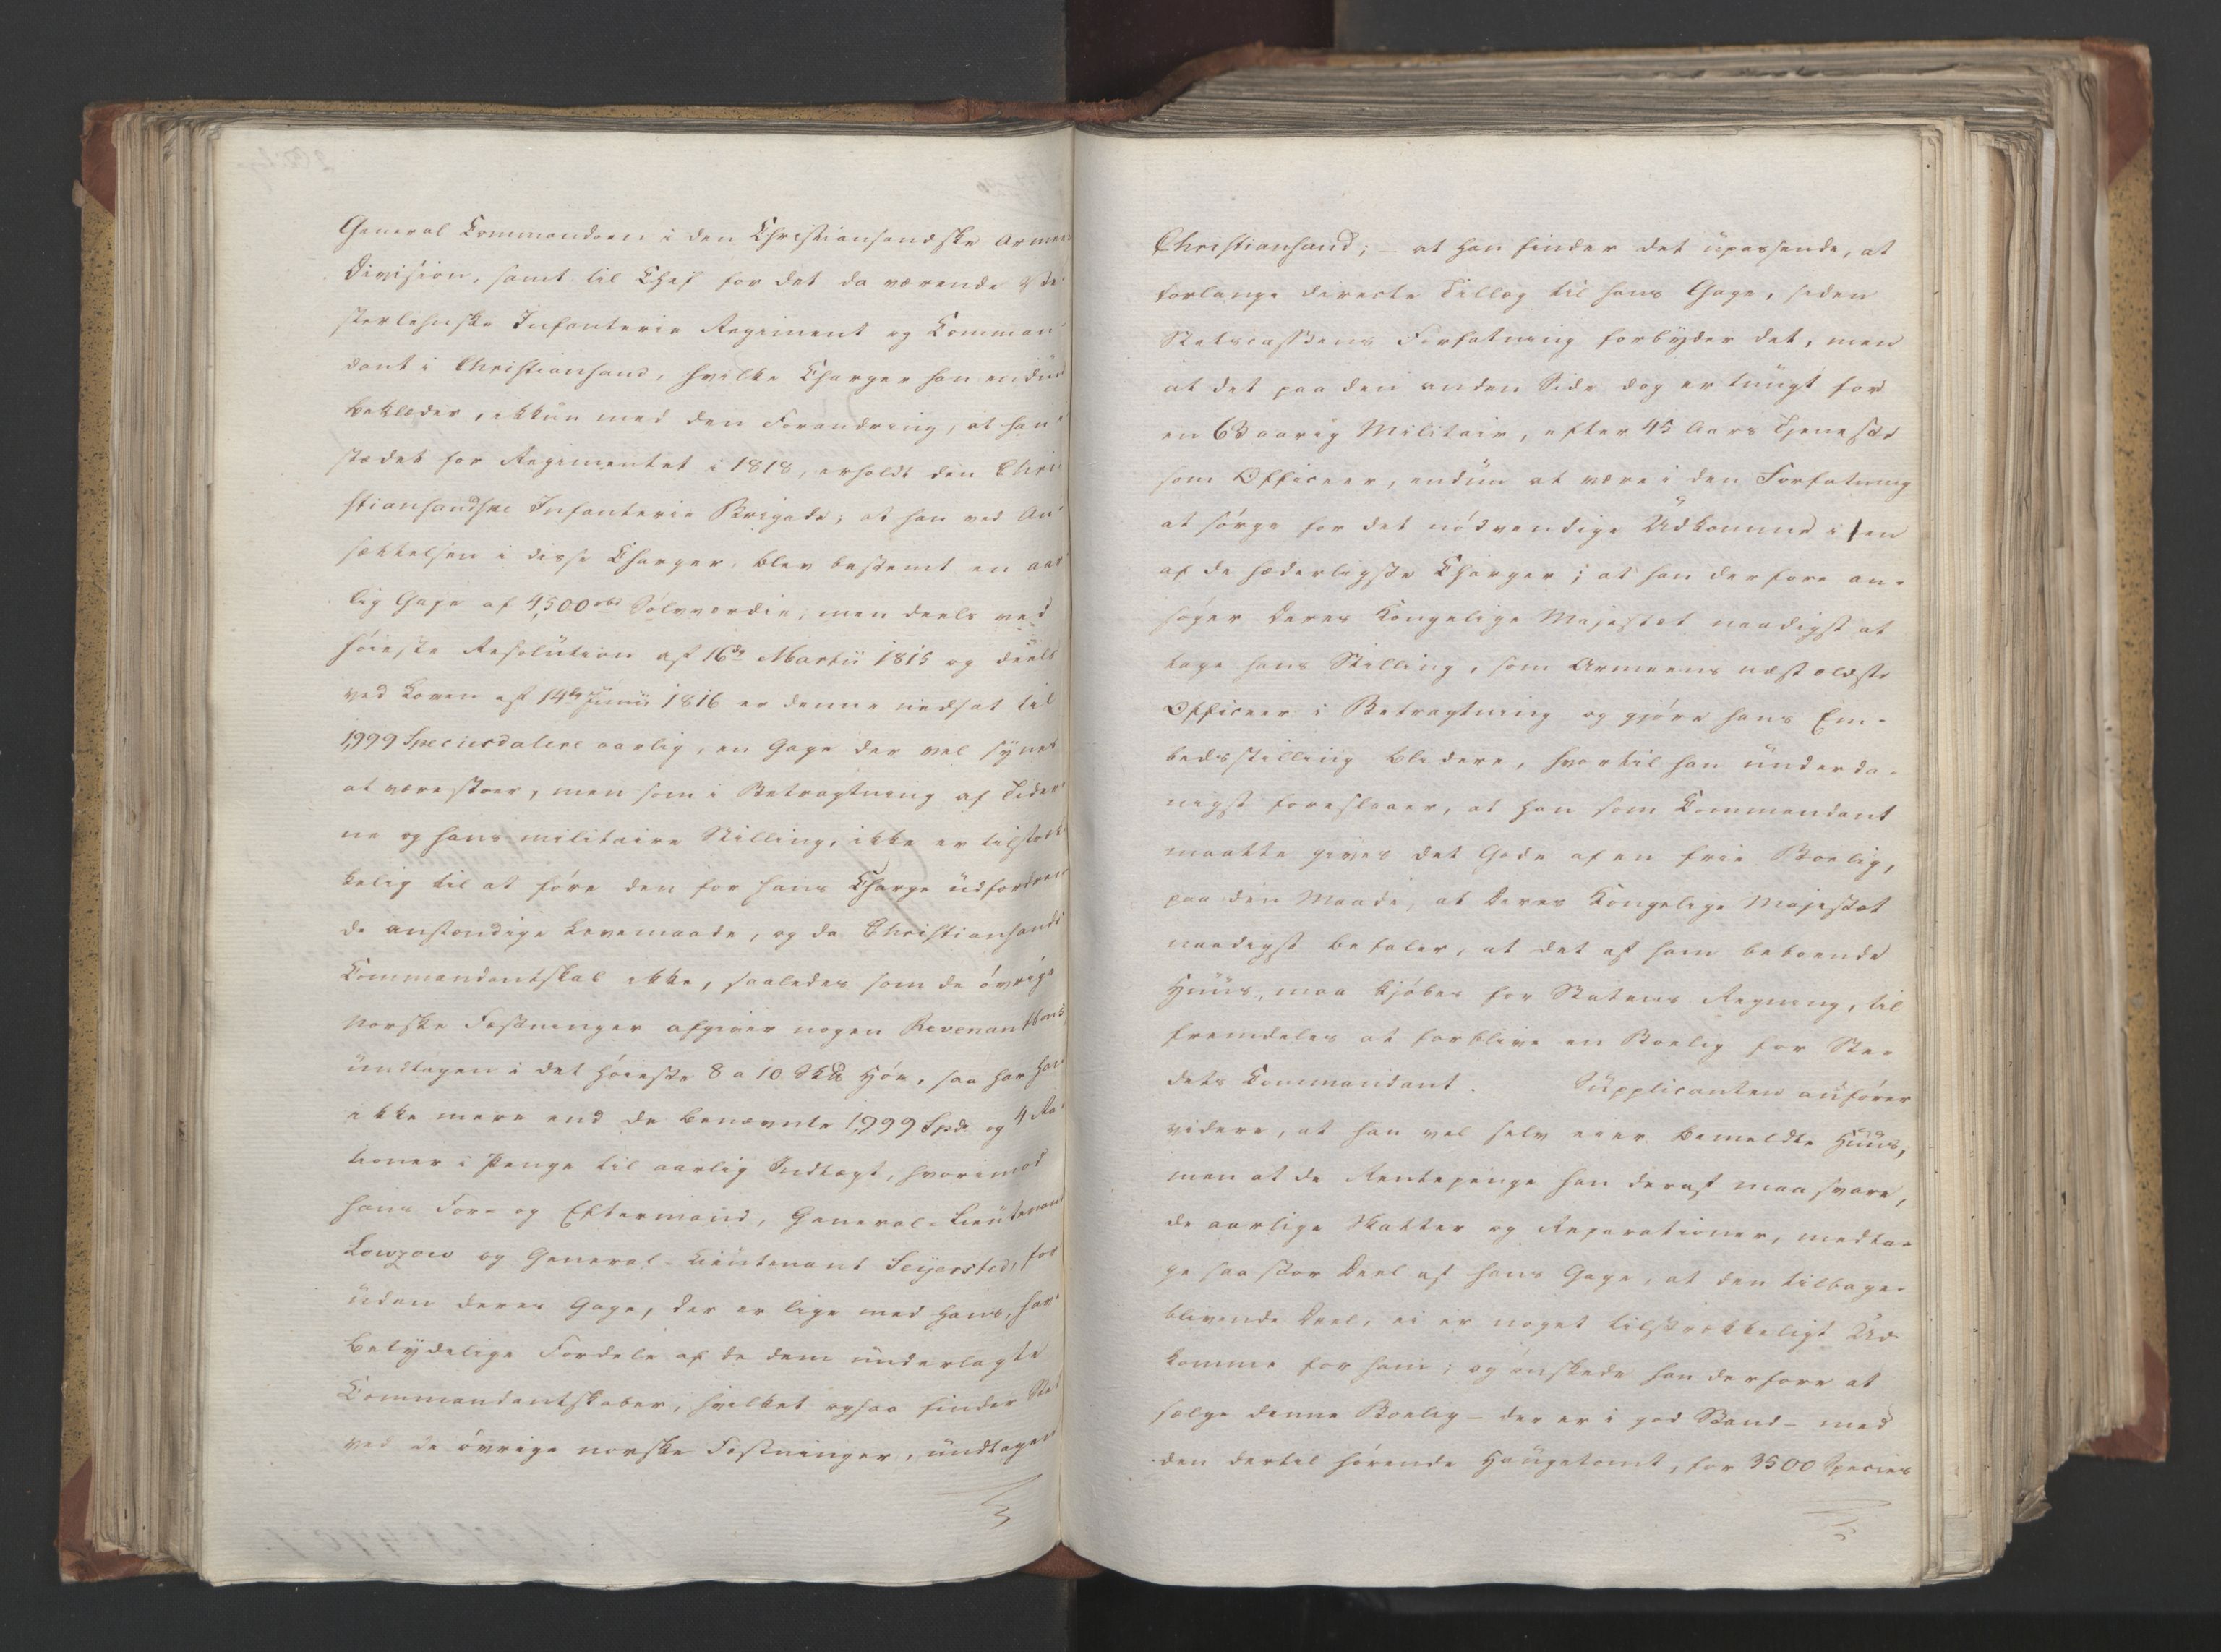 General Commandoen i den Christiansandske Armee
Division, samt til Chef for det da værende Ve
sterlehnske Infanterie Regiment og Comman
dant i Christiansand, hvilke Charger han endnu
beklæder, ikkun med den Forandring, at han i
stædet for Regimentet i 1818, erholdt den Chri
stiansandske Infanterie Brigade; at han ved An
sættelsen i disse Charger, blev bestemt en aar
lig Gage af 4,500 rbd Sølvværdie; men deels ved
høieste Resolution af 16de Martii 1815 og deels
ved Loven af 14de Junii 1816 er denne nedsat til
1,999 Speciesdalere aarlig, en Gage der vel synes
at være stoer, men som i Betragtning af Tider
ne og hans militaire Stilling, ikke er tilstræk
kelig til at føre den for hans Charge udfordren
de anstændige Levemaade, og da Christiansands
Commandantskab ikke, saaledes som de øvrige
norske Fæstninger afgiver nogen Revenant
undtagen i det høieste 8 a 10 Sk℔ Høe, saa har han
ikke mere end de benævnte 1,999 Spd. og 4 Ra
tioner i Penge til aarlig Indtægt, hvorimod
hans For- og Eftermand, General-Lieutenant
Lowzow og General-Lieutenant Seijersted, for
uden deres Gage, der er lige med hans, har
betydelige Fordele af de dem underlagte
Commandantskaber, hvilket ogsaa finder Sted
ved de øvrige norske Fæstninger, undtagen
Christiansand; – at han finder det upassende, at
forlange directe Tillæg til hans Gage, siden
Statscassens Forfatning forbyder det, men
at det paa den anden Side dog er tungt for
en 63 aarig Militair, efter 45 Aars Tjeneste
som Officeer, endnu at være i den Forfatning
at sørge for det nødvendige Udkomme i en
af de hæderligste Charger; at han derfore an-
søger Deres Kongelige Majestæt naadigst at
tage hans Stilling, som Armeens næst ældste
Officeer i Betragtning og gjøre hans Em-
bedsstilling blidere, hvortil han underda-
nigst foreslaaer, at han som Commandant
maatte gives det Gode af en frie Boelig,
paa den Maade, at Deres Kongelige Majestæt
naadigst befaler, at det af ham beboende
Huus, maa kjøbes for Statens Regning, til
fremdeles at forblive en Boelig for Ste-
dets Commandant. Supplicanten anfører
videre, at han vel selv eier bemeldte Huus,
men at de Rentepenge han deraf maa svare,
de aarlige Skatter og Reparationer, medta-
ge saa stor Deel af hans Gage, at den tilbage-
blivende Deel, ei er noget tilstrækkeligt Ud-
komme for ham; og ønskede han derfore at
sælge denne Boelig – der er i god Stand – med
den dertil hørende Haugetomt, for 3500 Species